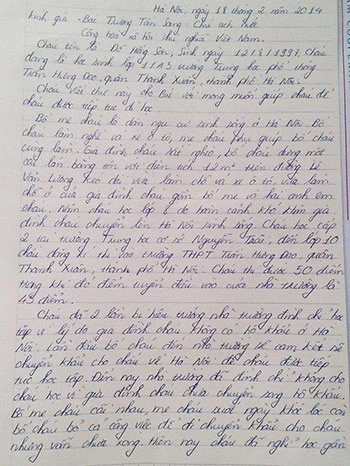 Hà Nội, ngày 18 tháng 2 năm 2014
Kính gửi: Bác Trương Tấn Sang - Chủ tịch nước
Cộng hoà xã hội chủ nghĩa Việt Nam.
Cháu tên là Đỗ Hồng Sơn, Sinh ngày 12/8/1997, Cháu
đang là học sinh lớp 11A5 trường Trung học phổ thông
Trần Hưng Đạo, quận Thanh Xuân, thành phố Hà Nội.
Cháu viết thư này cho Bác với mong muốn giúp cháu để
cháu được tiếp tục đi học
Bố mẹ cháu là dân ngụ cư sinh sống ở Hà Nội. Bố
cháu làm nghề vá xe ô tô, mẹ cháu phụ giúp bố cháu
cùng làm. Gia đình cháu rất nghèo, bố cháu dựng một
cái lán bằng tôn với diện tích 12m² trên đường Lê
Văn Lương kéo dài vừa làm chỗ vá xe ô tô, vừa làm
chỗ ở của gia đình cháu gồm bố mẹ và hai anh em
cháu. Năm cháu học lớp 8 do hoàn cảnh khó khăn gia
đình cháu chuyển lên Hà Nội sinh sống. Cháu học cấp
2 tại trường Trung học cơ sở Nguyễn Trãi, đến lớp 10
cháu đăng kí thi vào trường THPT Trần Hưng Đạo quận
Thanh Xuân, thành phố Hà Nội. Cháu thi được 50 điểm
trong khi đó điểm tuyển đầu vào của nhà trường là
49 điểm.
Cháu đã 2 lần bị hiệu trưởng nhà trường đình chỉ học
tập vì lý do gia đình cháu không có hộ khẩu ở Hà
Nội. Lần đầu bố cháu đến nhà trường sẽ cam kết sẽ
chuyển khẩu cho cháu về Hà Nội để cháu được tiếp
tục học tập. Đến nay nhà trường đã đình chỉ không cho
cháu học vì gia đình cháu chưa chuyển xong hộ khẩu.
Bố mẹ cháu cãi nhau, mẹ cháu suốt ngày khóc lóc còn
bố cháu bỏ cả công việc để đi chuyển khẩu cho cháu
nhưng vẫn chưa xong. Hiện nay cháu đã nghỉ học gần